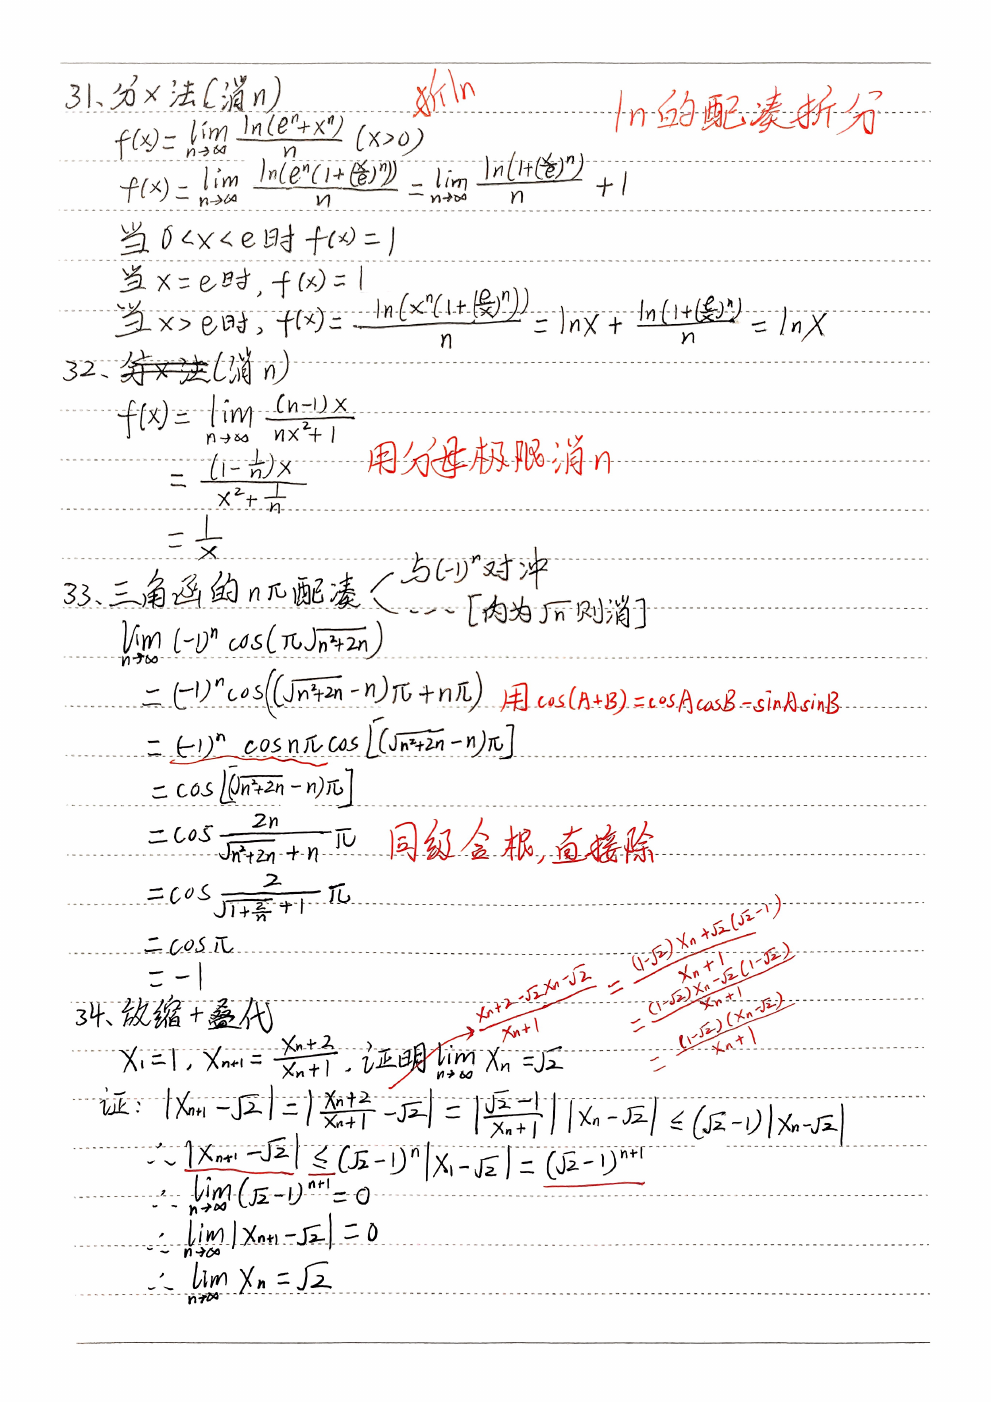 31、分x法(消n) 拆ln
ln的配凑拆分
f(x)=lim_{n→∞} ln(eⁿ+xⁿ)/n (x>0)
f(x)=lim_{n→∞} ln(eⁿ(1+(x/e)ⁿ))/n = lim_{n→∞} ln(1+(x/e)ⁿ)/n + 1
当 0<x<e时 f(x)=1
当 x=e时, f(x)=1
当 x>e时, f(x)= ln(xⁿ(1+(e/x)ⁿ))/n = lnx + ln(1+(e/x)ⁿ)/n = lnx
32、分x法(消n)
f(x)= lim_{n→∞} (n-1)x/(nx²+1)
= (1-1/n)x/(x²+1/n) 用分母极限消n
= 1/x
33、三角函的nπ配凑 < 与(-1)ⁿ对冲
---- [内为√n则消]
lim_{n→∞} (-1)ⁿ cos(π√(n²+2n))
= (-1)ⁿcos((√(n²+2n)-n)π+nπ) 用cos(A+B)=cosAcosB-sinAsinB
= (-1)ⁿ cosnπ cos[(√(n²+2n)-n)π]
= cos[(√(n²+2n)-n)π]
= cos 2n/(√(n²+2n)+n) π 同级含根,直接除
= cos 2/(√(1+2/n)+1) π
= cosπ
= -1
34、放缩+叠代
(xn+2-√2xn-√2)/(xn+1) = ((1-√2)xn+√2(√2-1))/(xn+1)
= ((1-√2)xn-√2(1-√2))/(xn+1)
= ((1-√2)(xn-√2))/(xn+1)
X₁=1, Xn+1= (Xn+2)/(Xn+1), 证明lim_{n→∞} Xn=√2
证: |Xn+1-√2|=|(Xn+2)/(Xn+1)-√2|=|(√2-1)/(Xn+1)||Xn-√2|≤(√2-1)|Xn-√2|
∴|Xn+1-√2|≤(√2-1)ⁿ|X₁-√2|=(√2-1)ⁿ⁺¹
∵ lim_{n→∞}(√2-1)ⁿ⁺¹=0
∴ lim_{n→∞}|Xn+1-√2|=0
∴ lim_{n→∞} Xn=√2